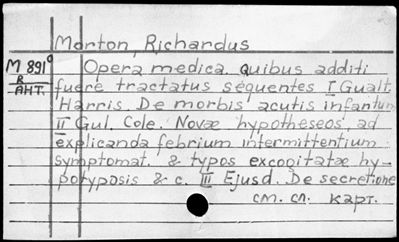 Morton, Richardus
M 891°
R
АНТ.
Opera medica. quibus additi
fuere tractatus sequentes I Gualt.
Harris. De morbis acutis infantum
II Gul. Cole. Novæ hypotheseos, ad
explicanda febrium intermittentium
symptomat. & typos excogitatæ hy-
potyposis & c. III Ejusd. De secretione
см. сл. карт.